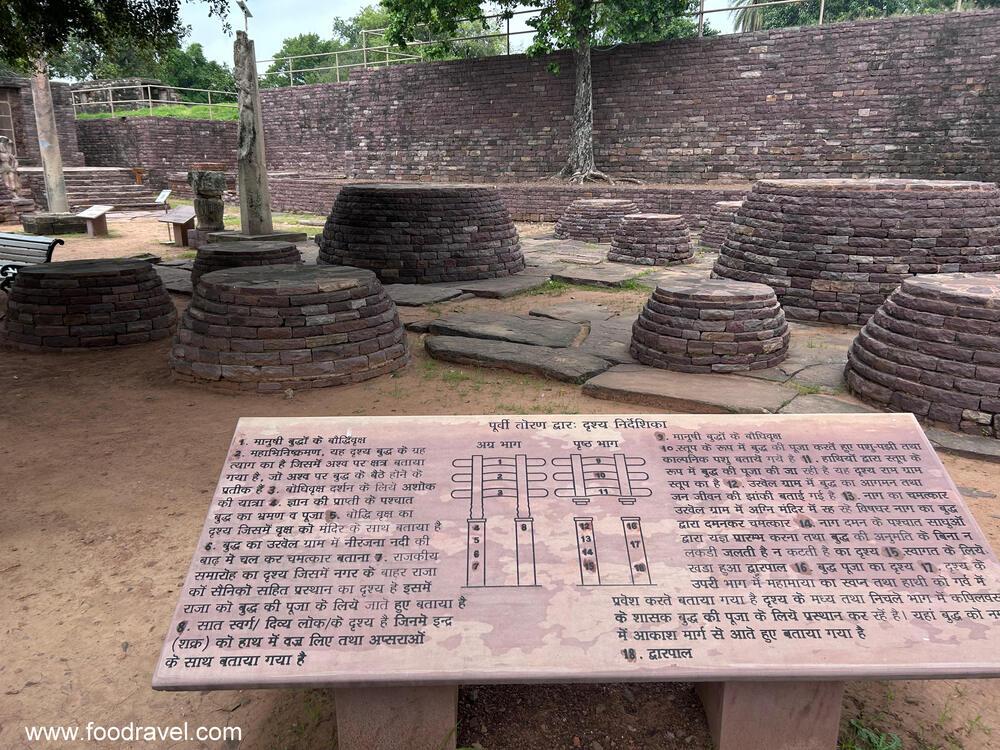 पूर्वी तोरण द्वारः दृश्य निर्देशिका
1. मानुषी बुद्धों के बोधिवृक्ष
2. महाभिनिष्क्रमण, यह दृश्य बुद्ध के ग्रह
त्याग का है जिसमें अश्व पर क्षत्र बताया
गया है, जो अश्व पर बुद्ध के बैठे होने के
प्रतीक हैं 3. बोधिवृक्ष दर्शन के लिये अशोक
की यात्रा 4. ज्ञान की प्राप्ती के पश्चात
बुद्ध का भ्रमण व पूजा 5. बोद्धि वृक्ष का
दृश्य जिसमें वृक्ष को मंदिर के साथ बताया है
6. बुद्ध का उरूवेल ग्राम में नीरजना नदी की
बाढ़ में चल कर चमत्कार बताना 7. राजकीय
समारोह का दृश्य जिसमें नगर के बाहर राजा
को सैनिकों सहित प्रस्थान का दृश्य है इसमें
राजा को बुद्ध की पूजा के लिये जाते हुए बताया है
8. सात स्वर्ग/ दिव्य लोक/के दृश्य है जिनमे इन्द्र
(शक्र) को हाथ में वज्र लिए तथा अप्सराओं
के साथ बताया गया है
अग्र भाग
1
2
3
4
5
6
7
8
पृष्ठ भाग
9
10
11
12
13
14
15
16
17
18
9. मानुषी बुद्धों के बोधिवृक्ष
10. स्तूप के रूप में बुद्ध की पूजा करते हुए पशु-पक्षी तथा
काल्पनिक पशु बताये गये है 11. हाथियों द्वारा स्तूप के
रूप में बुद्ध की पूजा की जा रही है यह दृश्य राम ग्राम
स्तूप का है 12. उरूवेल ग्राम में बुद्ध का आगमन तथा
जन जीवन की झांकी बताई गई है 13. नाग का चमत्कार
उरूवेल ग्राम में अग्नि मंदिर में रह रहे विषधर नाग का बुद्ध
द्वारा दमनकर चमत्कार 14. नाग दमन के पश्चात साधूओं
द्वारा यज्ञ प्रारम्भ करना तथा बुद्ध की अनुमति के बिना न
लकड़ी जलती है न कटती है का दृश्य 15. स्वागत के लिये
खड़ा हुआ द्वारपाल 16. बुद्ध पूजा का दृश्य 17. दृश्य के
उपरी भाग में महामाया का स्वप्न तथा हाथी को गर्व में
प्रवेश करते बताया गया है दृश्य के मध्य तथा निचले भाग में
के शासक बुद्ध की पूजा के लिये प्रस्थान कर रहें है। यहां बुद्ध को
में आकाश मार्ग से आते हुए बताया गया है
18. द्वारपाल
www.foodravel.com